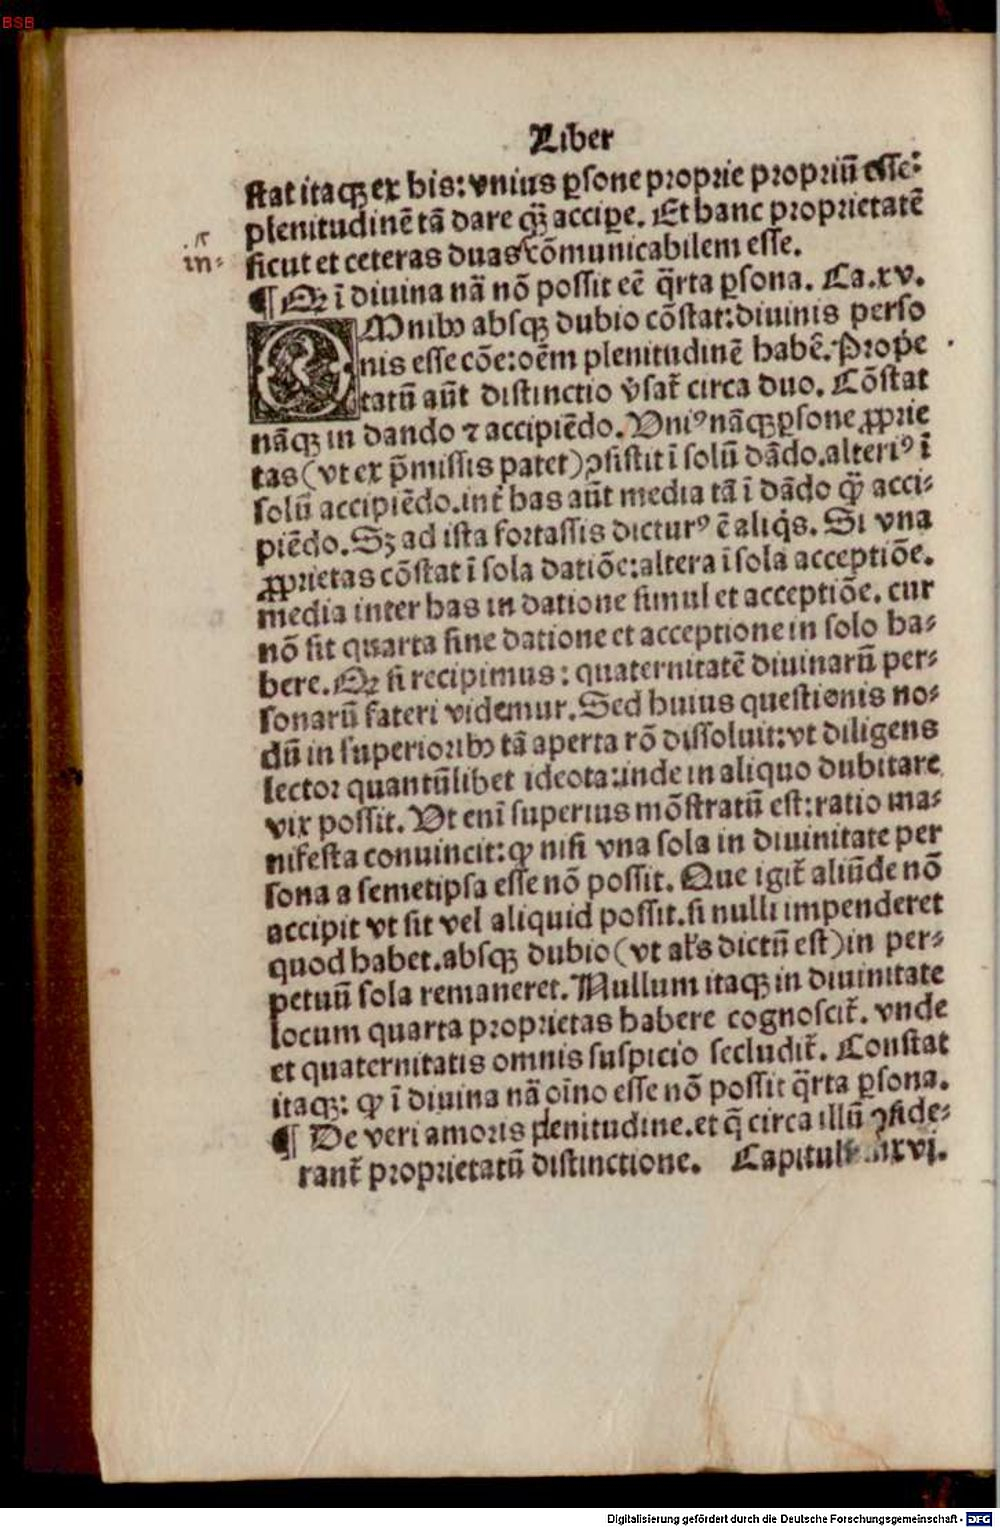 BSB
Liber
ſtat itaqꝫ ex his: vnius ꝑſone proprie propriū eſſe:
plenitudinē tā dare q̄ꝫ accipe. Et hanc proprietatē
in-
ſicut et ceteras duas cōmunicabilem eſſe.
¶ Qꝫ ī diuina nā nō poſſit eē q̄rta ꝑſona. Ca.xv.
OMnibꝰ abſqꝫ dubio cōſtat: diuinis perſo
nis eſſe cōe: oēm plenitudinē habē. Prope
tatū aūt diſtinctio v̄ſat̄ circa duo. Cōſtat
nāqꝫ in dando ⁊ accipiēdo. Vniꝰ nāqꝫ ꝑſone ꝓprie
tas (vt ex p̄miſſis patet) ꝯſiſtit ī ſolū dādo. alteriꝰ ī
ſolū accipiēdo. int̄ has aūt media tā ī dādo q̄ꝫ acci-
piēdo. Sꝫ ad iſta fortaſſis dicturꝰ ē aliq̄s. Si vna
ꝓprietas cōſtat ī ſola datiōe: altera ī ſola acceptiōe.
media inter has in datione ſimul et acceptiōe. cur
nō ſit quarta ſine datione et acceptione in ſolo ha-
bere. Qꝫ ſi recipimus: quaternitatē diuinarū per-
ſonarū fateri videmur. Sed huius queſtionis no-
dū in ſuperioribꝰ tā aperta rō diſſoluit: vt diligens
lector quantūlibet ideota: inde in aliquo dubitare
vix poſſit. Vt enī ſuperius mōſtratū eſt: ratio ma-
nifeſta conuincit: ꝙ niſi vna ſola in diuinitate per
ſona a ſemetipſa eſſe nō poſſit. Que igit̄ aliūde nō
accipit vt ſit vel aliquid poſſit. ſi nulli impenderet
quod habet. abſqꝫ dubio (vt al's dictū eſt) in per-
petuū ſola remaneret. Nullum itaqꝫ in diuinitate
locum quarta proprietas habere cognoſcit̄. vnde
et quaternitatis omnis ſuſpicio ſecludit̄. Conſtat
itaqꝫ: ꝙ ī diuina nā oīno eſſe nō poſſit q̄rta ꝑſona.
¶ De veri amoris plenitudine. et q̄ circa illū ꝯſide-
rant̄ proprietatū diſtinctione. xvj.
Digitalisierung gefördert durch die Deutsche Forschungsgemeinschaft - DFG